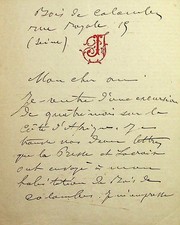 Bois de Colombes
rue Royale 15
(Seine)
Mon cher ami
Je rentre d'une excursion
de quatre mois sur la
côte d'Afrique. Je
trouve vos deux lettres
que la Presse et
ont envoyé à mon
habitation de Bois de
Colombes. Je m'empresse